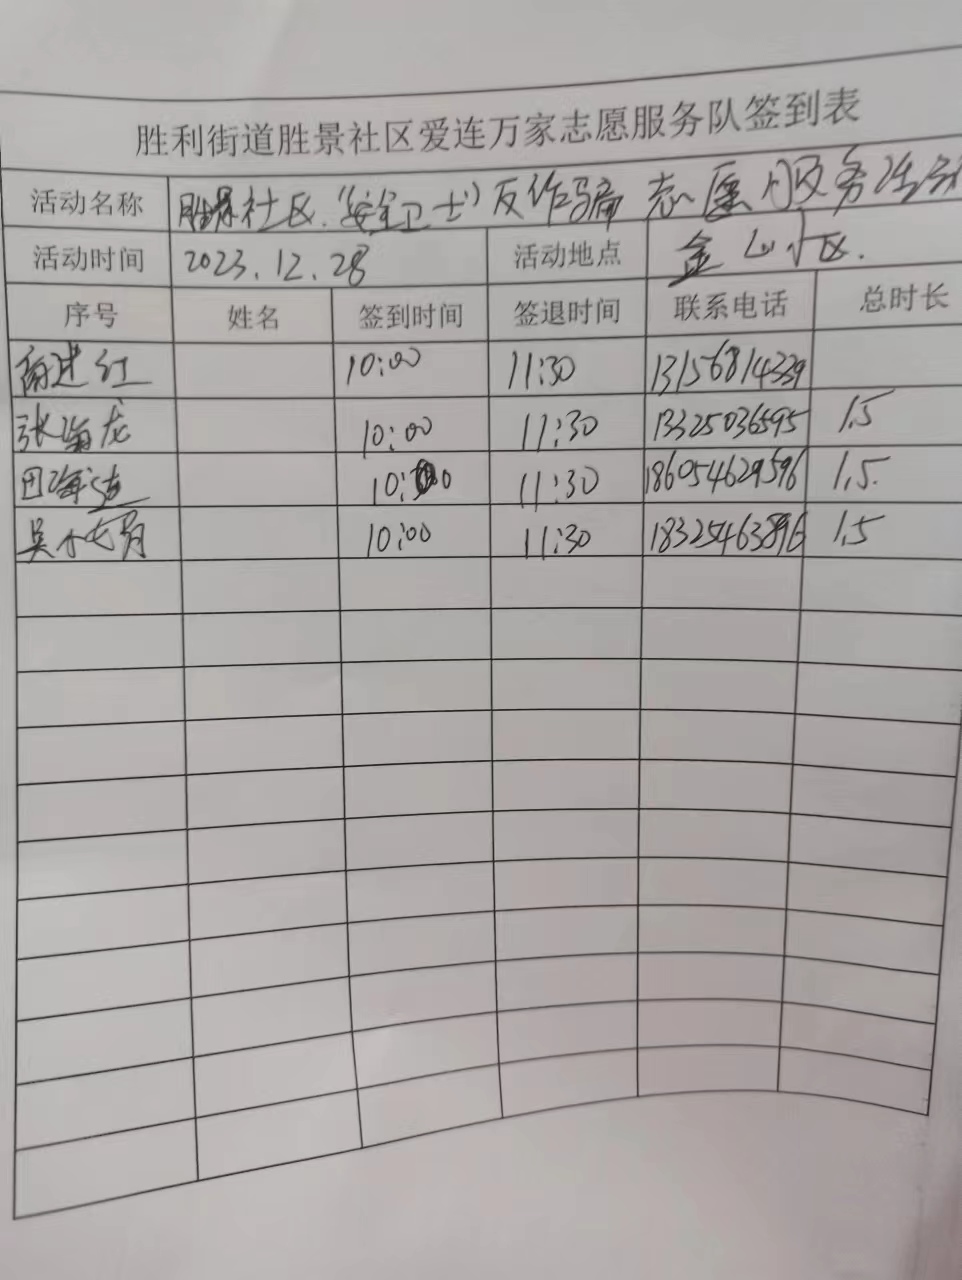 胜利街道胜景社区爱连万家志愿服务队签到表
活动名称 胜景社区"安全卫士"反诈骗志愿服务活动
活动时间 2023.12.28 活动地点 金山小区.
序号 姓名 签到时间 签退时间 联系电话 总时长
建红 10:00 11:30 13156814339
张海龙 10:00 11:30 13325036595 1.5
田海 10:00 11:30 186054629596 1.5.
吴 10:00 11:30 18325463896 1.5